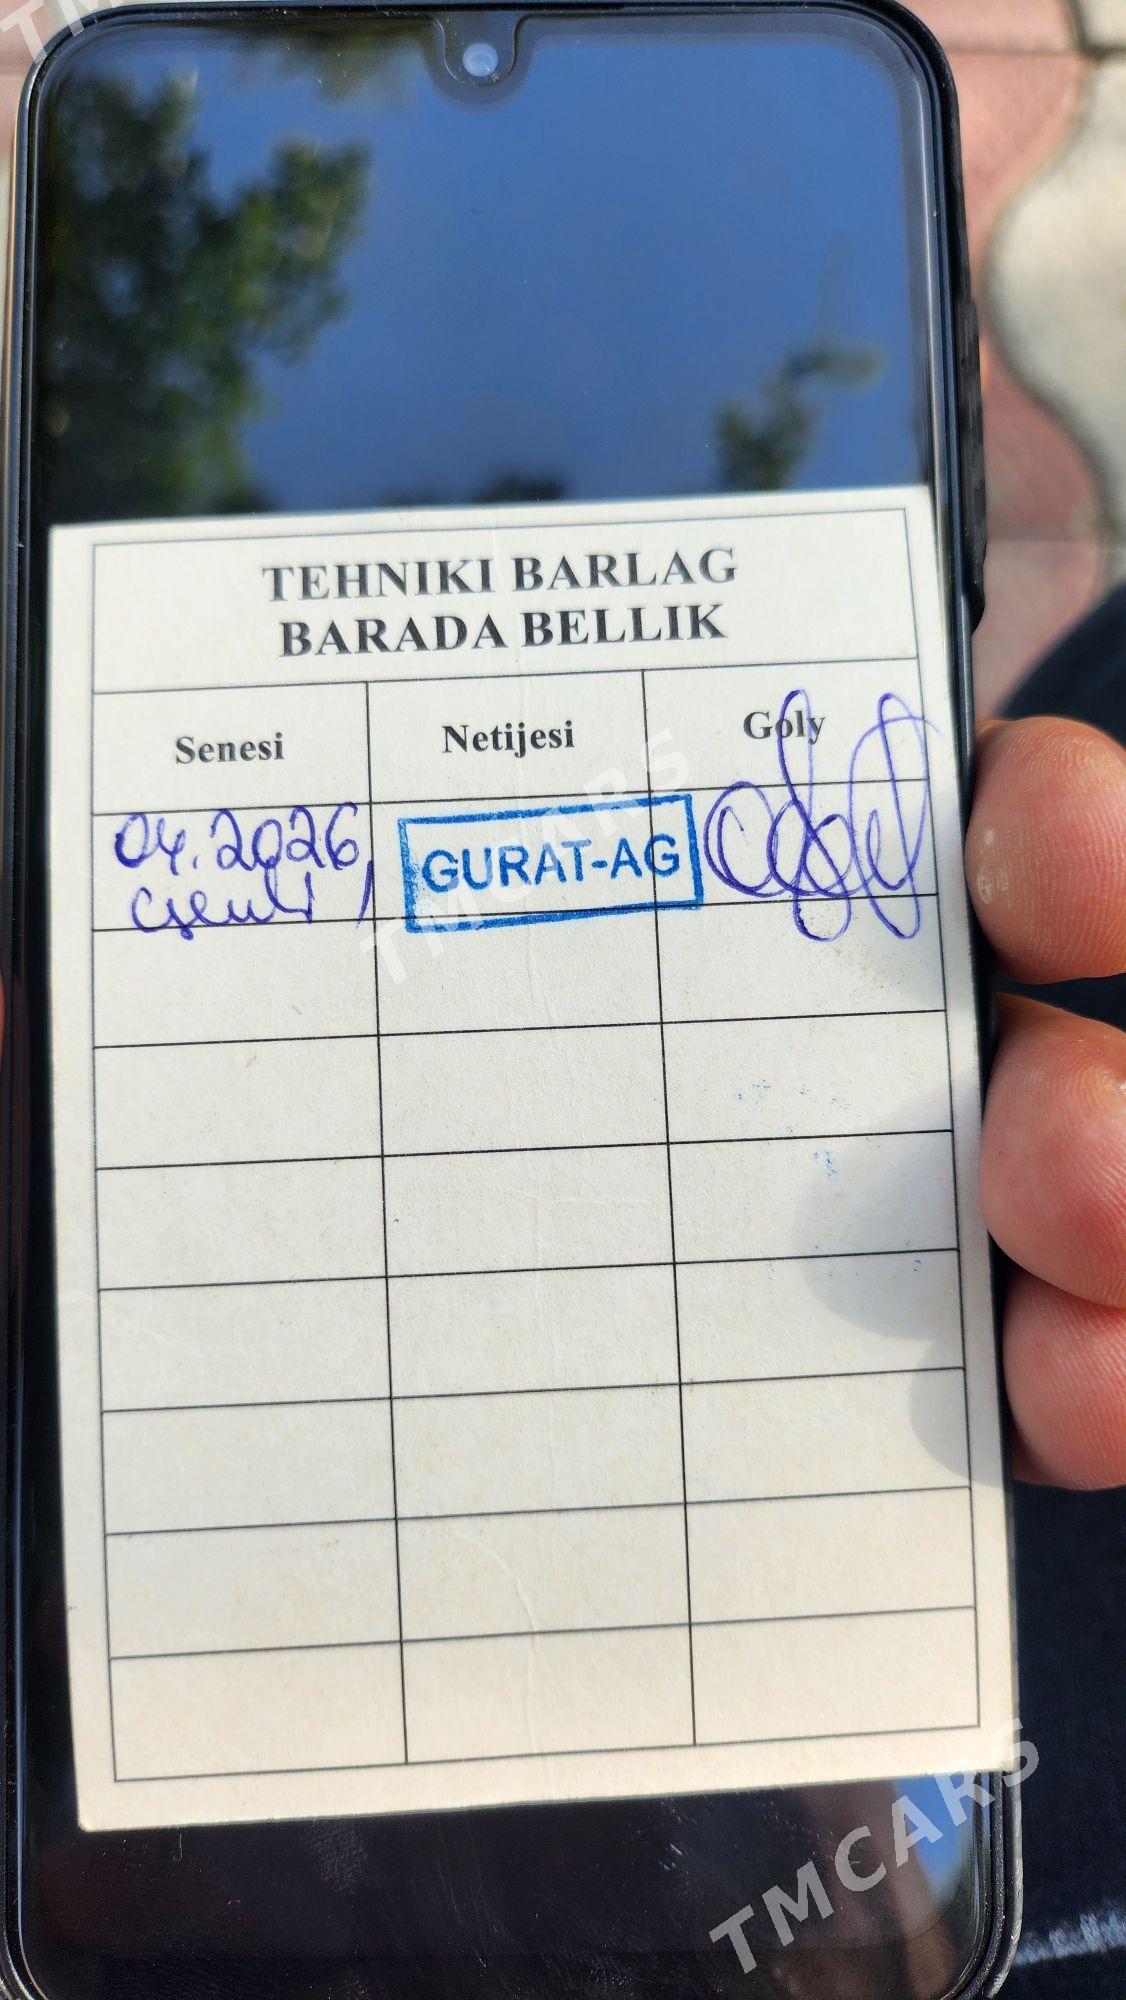 TEHNIKI BARLAG
BARADA BELLIK
Senesi Netijesi Goly
04.2026 GURAT-AG
TMCARS
TMCARS